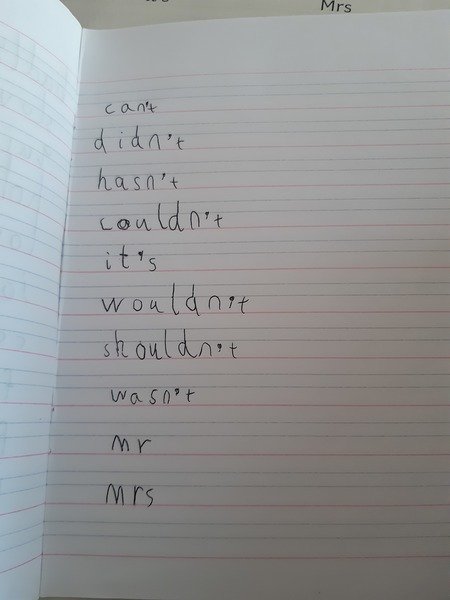 Mrs
can't
didn't
hasn't
couldn't
it's
wouldn't
shouldn't
wasn't
Mr
Mrs